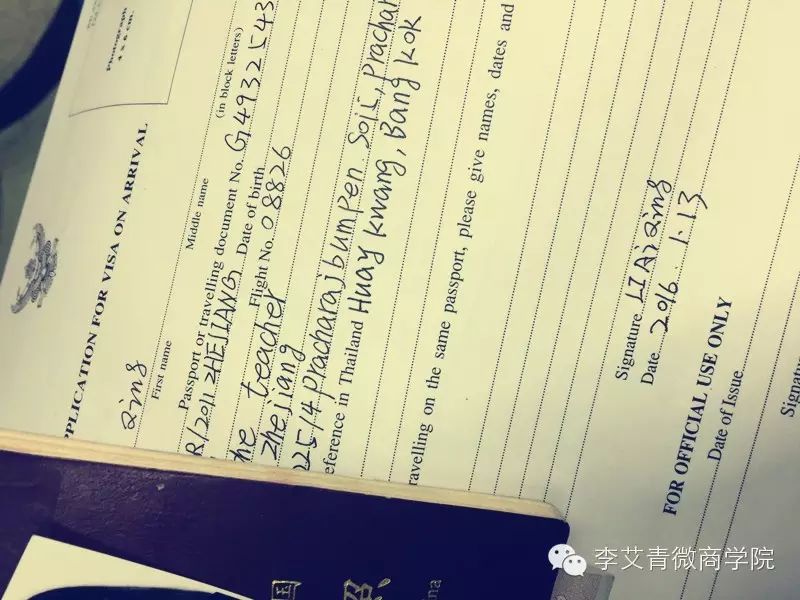 Photograph
4 x 6 cm.
PPLICATION FOR VISA ON ARRIVAL
Qing
First name
Middle name
(in block letters)
Passport or travelling document No. G4932543
R/2011 ZHEJIANG Date of birth
he teacher Flight No. 08826
Zhejiang
225/4 Pracharajbumpen Soi5, Prachar
eference in Thailand Huay Kwang, Bang Kok
ravelling on the same passport, please give names, dates and
Signature LI Ai Qing
Date 2016.1.13
FOR OFFICIAL USE ONLY
Date of Issue
Signatu
国
照
ina
李艾青微商学院